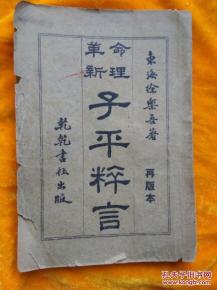 東海徐樂吾著
再版本
命理
革新
子平粹言
乾乾書社出版